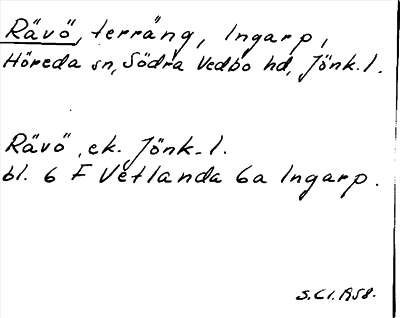 Rävö, terräng, Ingarp,
Höreda sn, Södra Vedbo hd, Jönk. l.
Rävö, ek. Jönk. l.
bl. 6 F Vetlanda 6a Ingarp.
S.Cl. 1958.